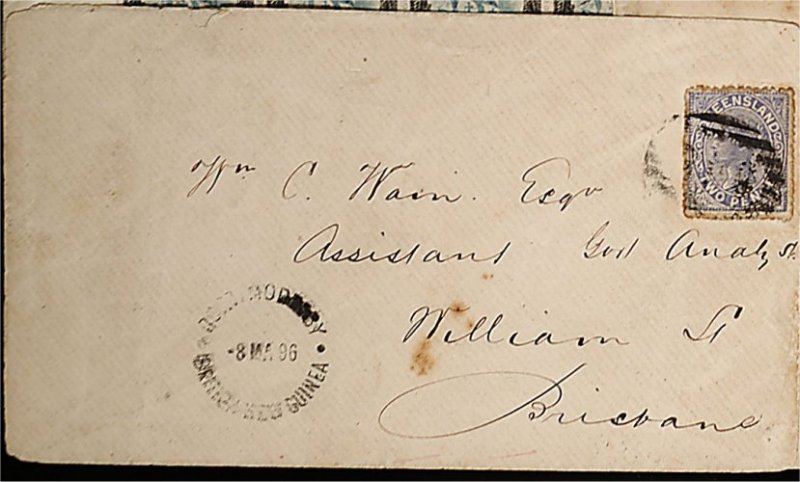 QUEENSLAND
TWO PENCE
Wm C. Wain. Esqr
Assistant Govt Analyst
William St
Brisbane
PORT MORESBY
-8 MA 96
BRITISH NEW GUINEA